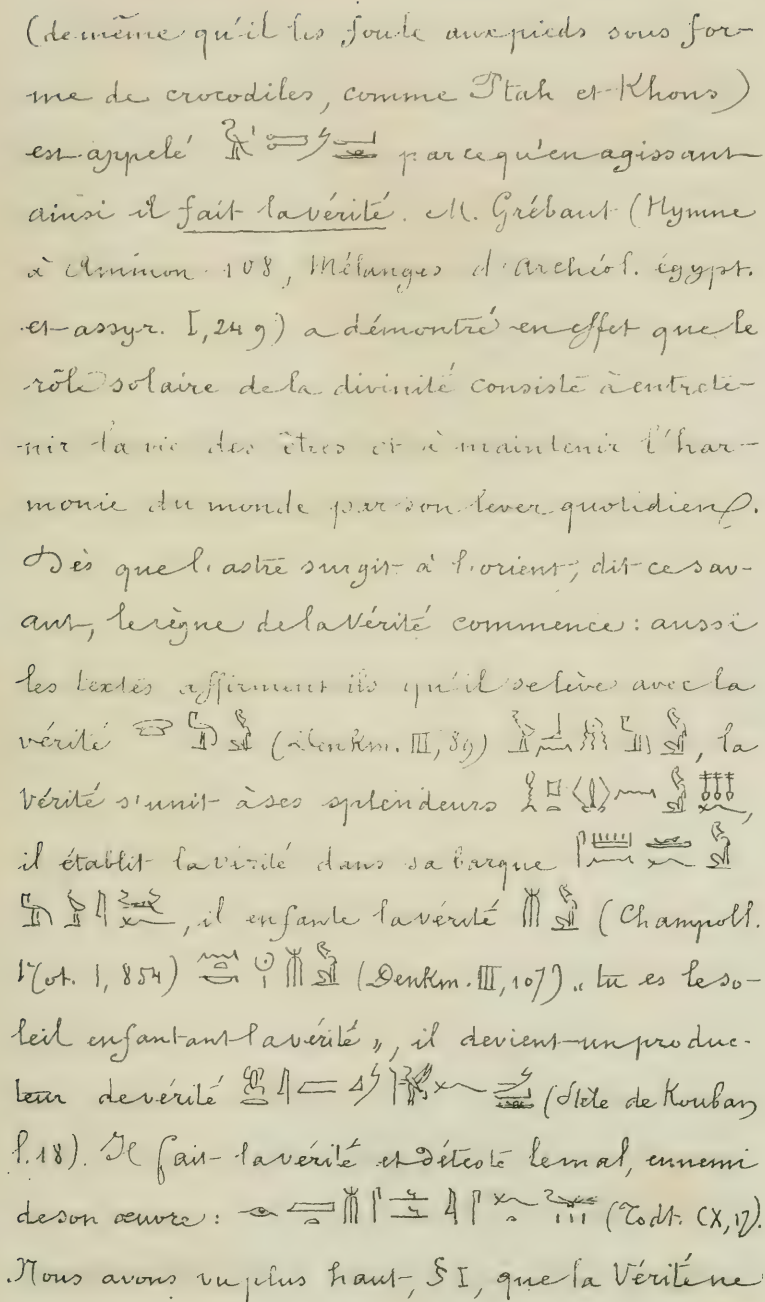 (de même qu'il les foule aux pieds sous for-
me de crocodiles, comme Ptah et Khons)
est appelé parce qu'en agissant
ainsi il fait la vérité. M. Grébaut (Hymne
à Ammon 108, Mélanges d'Archéol. égypt.
et assyr. I, 249) a démontré en effet que le
rôle solaire de la divinité consiste à entrete-
nir la vie des êtres et à maintenir l'har-
monie du monde par son lever quotidien.
Dès que l'astre surgit à l'orient, dit ce sav-
ant, le règne de la Vérité commence : aussi
les textes affirment ils qu'il se lève avec la
vérité (Denkm. III, 89) , la
vérité s'unit à ses splendeurs ,
il établit la vérité dans sa barque
, il enfante la vérité (Champoll.
Not. I, 854) (Denkm. III, 107) „ tu es le so-
leil enfantant la vérité „, il devient un produc-
teur de vérité (Stèle de Kouban
l. 18). Il fait la vérité et déteste le mal, ennemi
de son œuvre : (Todt. CX, 17).
Nous avons vu plus haut, § I, que la Vérité ne